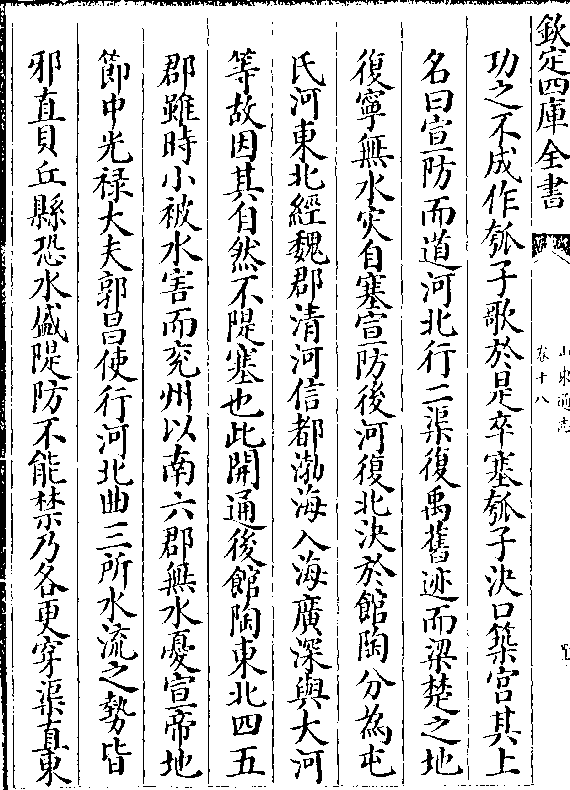 欽定四庫全書
山東通志
卷十八
功之不成作瓠子歌於是卒塞瓠子決口築宮其上
名曰宣防而道河北行二渠復禹舊迹而梁楚之地
復寧無水災自塞宣防後河復北決於館陶分為屯
氏河東北經魏郡清河信都渤海入海廣深與大河
等故因其自然不隄塞也此開通後館陶東北四五
郡雖時小被水害而兖州以南六郡無水憂宣帝地
節中光禄大夫郭昌使行河北曲三所水流之勢皆
邪直貝丘縣恐水盛隄防不能禁乃各更穿渠直東